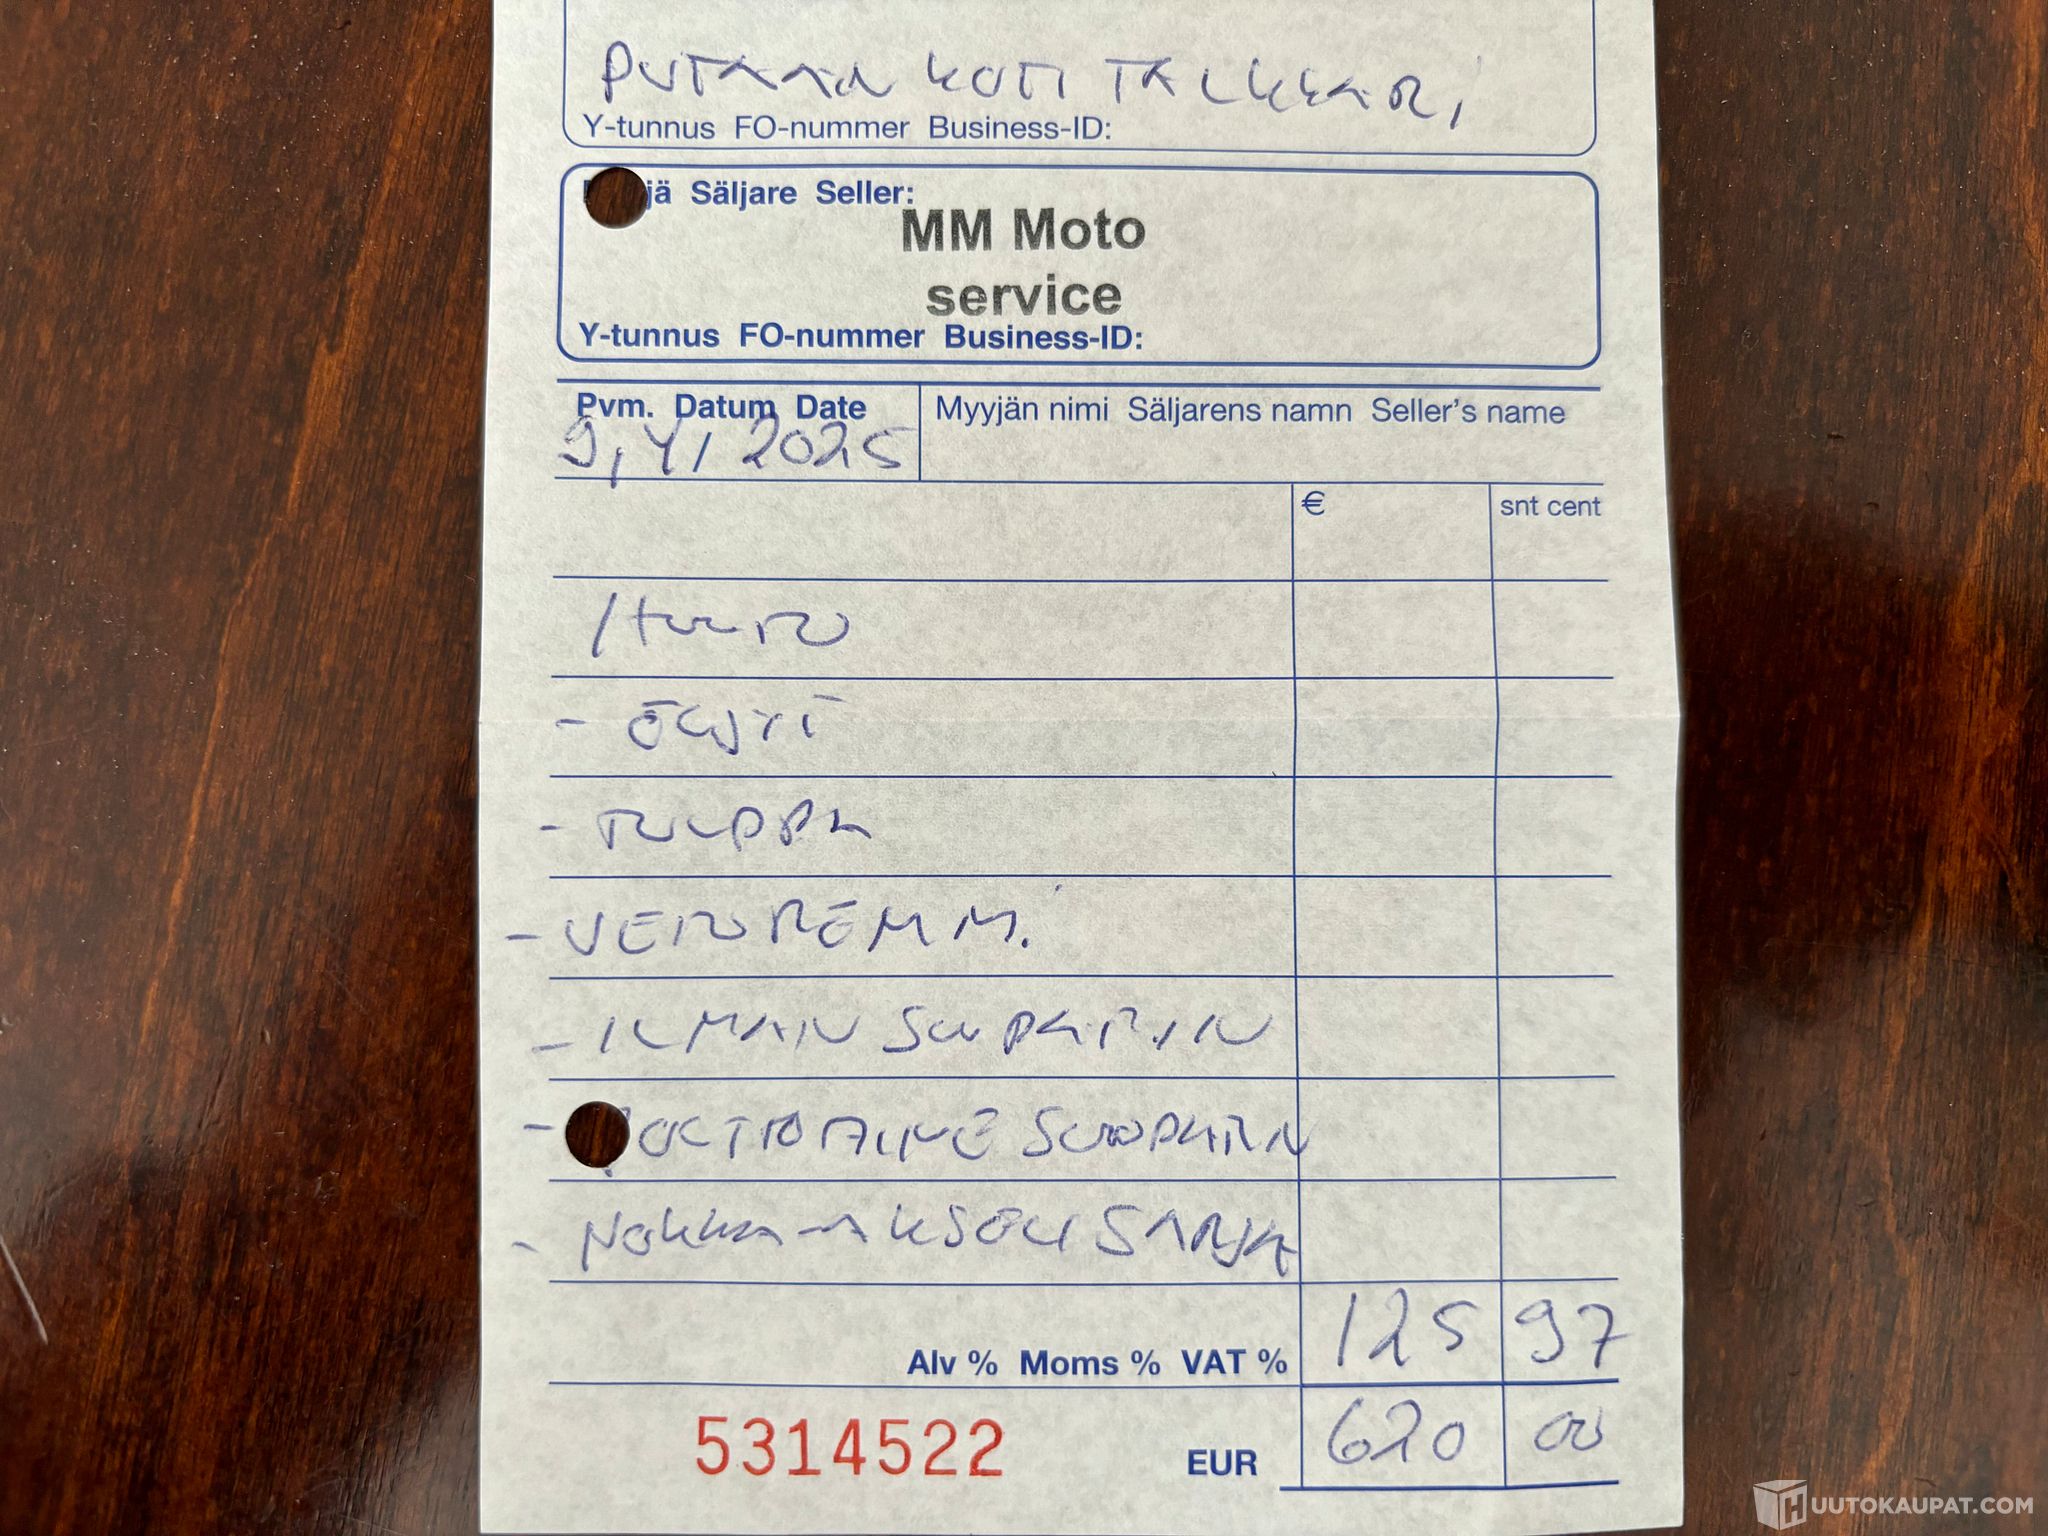 PUTAAN KOTI TALKKARI
Y-tunnus FO-nummer Business-ID:
jä Säljare Seller:
MM Moto
service
Y-tunnus FO-nummer Business-ID:
Pvm. Datum Date Myyjän nimi Säljarens namn Seller's name
9,4,2025
€ snt cent
HUOLTO
- ÖLJYT
- TULPPA
- VETOREMMI
- ILMAN SUODATIN
- SUODATIN
- NOKKA-AKSELI SARJA
Alv % Moms % VAT % 125 97
5314522 EUR 620 00
HUUTOKAUPAT.COM